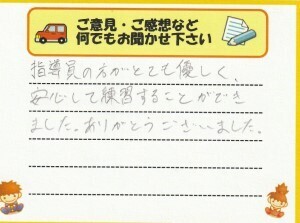 ご意見・ご感想など
何でもお聞かせ下さい
指導員の方がとても優しく、
安心して練習することができ
ました。ありがとうございました。